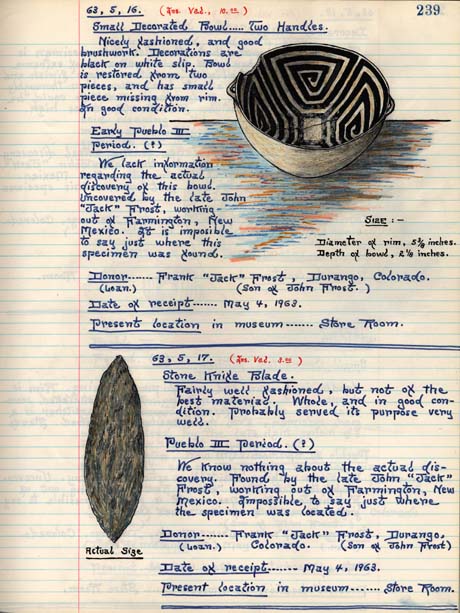 239
63, 5, 16. (Ins. Val., 10.00)
Small Decorated Bowl..... Two Handles.
Nicely fashioned, and good
brushwork. Decorations are
black on white slip. Bowl
is restored from two
pieces, and has small
piece missing from rim.
In good condition.
Early Pueblo III
Period. (?)
We lack information
regarding the actual
discovery of this bowl.
Uncovered by the late John
"Jack" Frost, working
out of Farmington, New
Mexico. It is imposible
to say just where this
specimen was found.
Size :-
Diameter of rim, inches.
Depth of bowl, inches.
Donor...... Frank "Jack" Frost, Durango, Colorado.
(Loan.) (Son of John Frost.)
Date of receipt....... May 4, 1963.
Present location in museum....... Store Room.
63, 5, 17. (Ins. Val. )
Stone Knife Blade.
Fairly well fashioned, but not of the
best material. Whole, and in good con-
dition. Probably served its purpose very
well.
Pueblo III Period. (?)
We know nothing about the actual dis-
covery. Found by the late John "Jack"
Frost, working out of Farmington, New
Mexico. Impossible to say just where
the specimen was located.
Donor...... Frank "Jack" Frost, Durango,
(Loan.) Colorado. (Son of John Frost)
Actual Size
Date of receipt....... May 4, 1963.
Present location in museum....... Store Room.